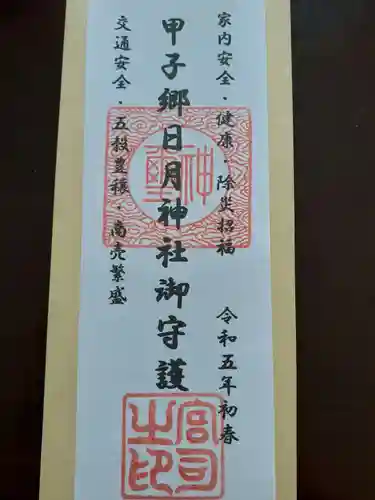 家内安全・健康・除災招福　令和五年初春
甲子郷日月神社御守護
交通安全・五穀豊穣・商売繁盛
神璽
宮司之印